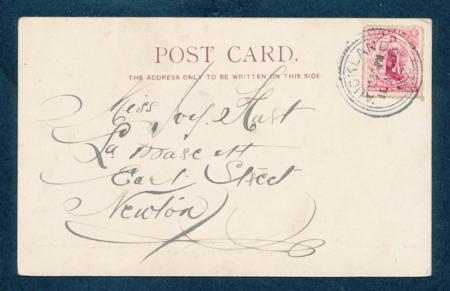 POST CARD.
THE ADDRESS ONLY TO BE WRITTEN ON THIS SIDE
AUCKLAND
Miss Ivy Hast
La Mascott
East Street
Newton